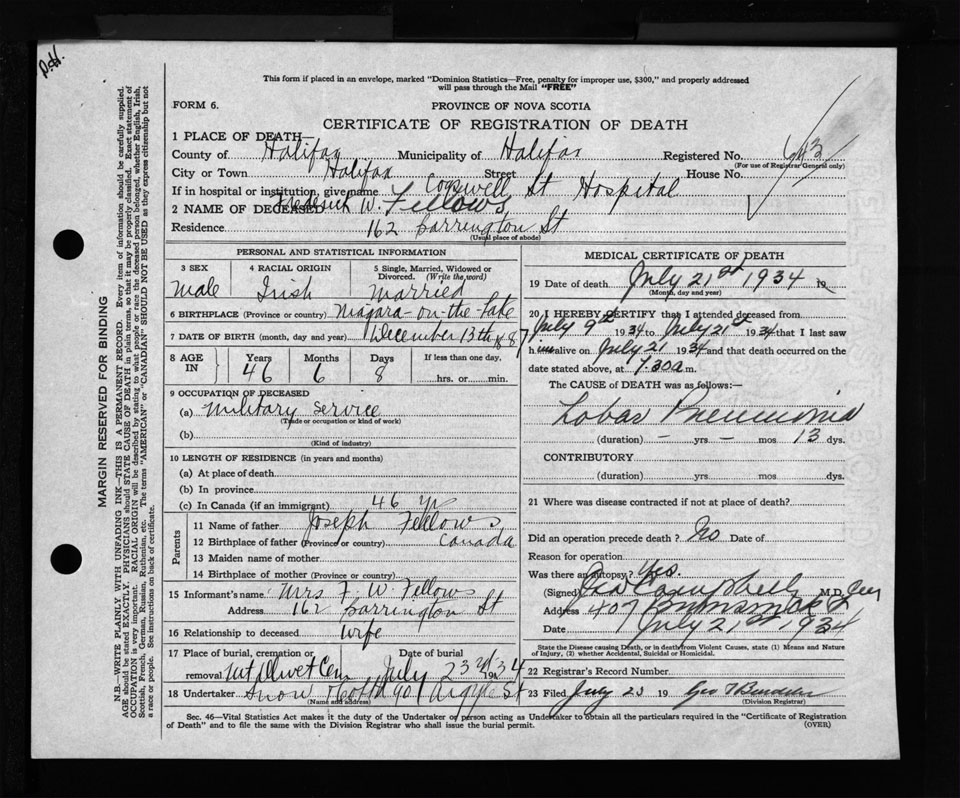 D.H.
This form if placed in an envelope, marked "Dominion Statistics—Free, penalty for improper use, $300," and properly addressed
will pass through the Mail "FREE"
FORM 6.
PROVINCE OF NOVA SCOTIA
CERTIFICATE OF REGISTRATION OF DEATH
1 PLACE OF DEATH—
County of Halifax Municipality of Halifax Registered No. 643
(For use of Registrar General only)
City or Town Halifax Street House No.
If in hospital or institution, give name Cogswell St Hospital
2 NAME OF DECEASED Frederick W. Fellows
Residence 162 Barrington St
(Usual place of abode)
PERSONAL AND STATISTICAL INFORMATION
3 SEX 4 RACIAL ORIGIN 5 Single, Married, Widowed or
Divorced. (Write the word)
Male Irish Married
6 BIRTHPLACE (Province or country) Niagara-on-the-Lake
7 DATE OF BIRTH (month, day and year) December 13th 1887
8 AGE IN Years Months Days If less than one day.
46 6 8 hrs. or min.
9 OCCUPATION OF DECEASED
(a) Military Service
(Trade or occupation or kind of work)
(b)
(Kind of industry)
10 LENGTH OF RESIDENCE (in years and months)
(a) At place of death
(b) In province
(c) In Canada (if an immigrant) 46 yrs
Parents
11 Name of father Joseph Fellows
12 Birthplace of father (Province or country) Canada
13 Maiden name of mother
14 Birthplace of mother (Province or country)
15 Informant's name Mrs F. W. Fellows
Address 162 Barrington St
16 Relationship to deceased wife
17 Place of burial, cremation or removal Date of burial
Mt Olivet Cem July 23rd 1934
18 Undertaker Snow & Co Ltd 90 Argyle St
(Name and address)
MEDICAL CERTIFICATE OF DEATH
19 Date of death July 21st 1934 19
(Month, day and year)
20 I HEREBY CERTIFY that I attended deceased from
July 9th 1934 to July 21st 1934 that I last saw
him alive on July 21 1934 and that death occurred on the
date stated above, at 1.30 a m.
The CAUSE of DEATH was as follows:—
Lobar Pneumonia
(duration) – yrs. – mos 13 dys.
CONTRIBUTORY
(duration) yrs. mos dys.
21 Where was disease contracted if not at place of death?
Did an operation precede death? No Date of
Reason for operation
Was there an autopsy? Yes.
(Signed) Campbell M.D.
Address 407 Brunswick St
Date July 21st 1934
State the Disease causing Death, or in death from Violent Causes, state (1) Means and Nature
of Injury, (2) whether Accidental, Suicidal or Homicidal.
22 Registrar's Record Number
23 Filed July 23 19 Geo
(Division Registrar)
Sec. 46—Vital Statistics Act makes it the duty of the Undertaker or person acting as Undertaker to obtain all the particulars required in the "Certificate of Registration
of Death" and to file the same with the Division Registrar who shall issue the burial permit. (OVER)
MARGIN RESERVED FOR BINDING
N.B.—WRITE PLAINLY WITH UNFADING INK—THIS IS A PERMANENT RECORD. Every item of information should be carefully supplied.
AGE should be stated EXACTLY. PHYSICIANS should STATE CAUSE OF DEATH in plain terms, so that it may be properly classified. Exact statement of
OCCUPATION is very important. RACIAL ORIGIN will be described by stating to what people or race the deceased person belonged, whether English, Irish,
Scottish, French, German, Russian, Ruthenian, etc. The terms "AMERICAN" or "CANADIAN" SHOULD NOT BE USED as they express citizenship but not
a race or people. See instructions on back of certificate.